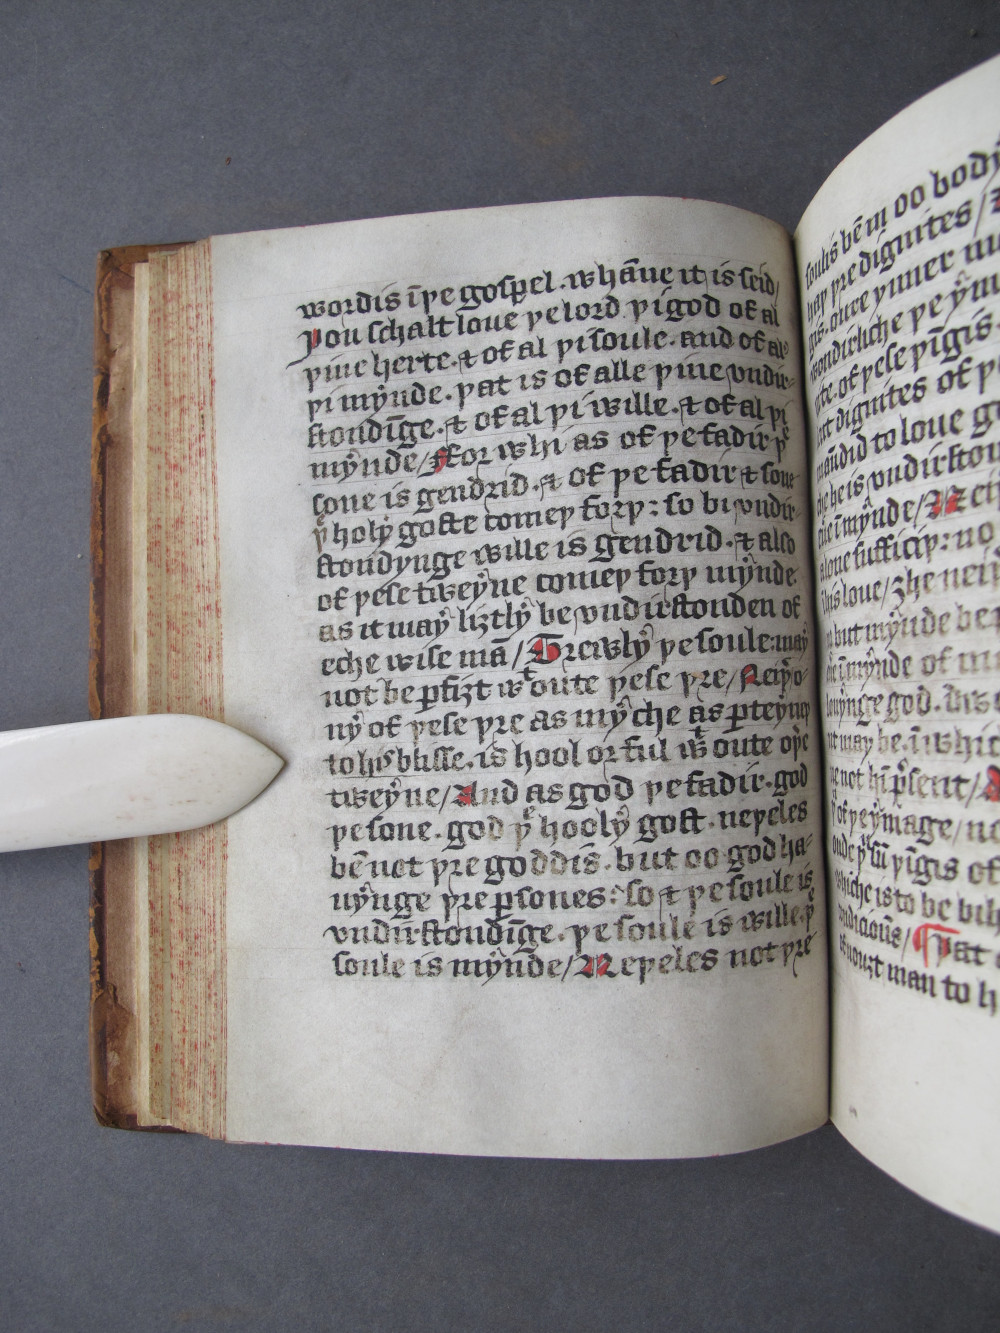 wordis ī þe gospel. whāne it is seid/
Þou schalt loue þe lord þi god of al
þine herte. ⁊ of al þi soule. and of al
þi mẏnde. þat is of alle þine vndir-
stondīge. ⁊ of al þi wille. ⁊ of al þi
mẏnde/ Ffor whi as of þe fadir þͤ
sone is gendrid. ⁊ of þe fadir ⁊ sone
þͤ holẏ goste comeþ forþ: so bi vndir-
stondynge wille is gendrid. ⁊ also
of þese tweẏne comeþ forþ mẏnde.
as it maẏ liȝtlẏ be vndirstonden of
eche wise mā/ Trewlẏ þe soule: maẏ
not be ꝑfiȝt wͭ oute þese þre/ Neiþͬ o-
nẏ of þese þre as mẏche as ꝑteẏneþ
to his blisse. is hool or ful wͭ oute oþͤ
tweẏne/ And as god þe fadir. god
þe sone. god þͤ hoolẏ gost. neþeles
bē not þre goddis. but oo god ha-
uẏnge þre ꝑsones: so ⁊ þe soule is
vndirstondīge. þe soule is wille. þͤ
soule is mẏnde/ Neþeles not þre
soulis bē in oo bodẏ
þre dignites/
oure ynner
wondirliche þe ẏm
of þese þīgis
dignites of þ
māndid to loue g
he is vndirston
ī mẏnde/ Ne
alone sufficiþ: no
þis loue/ ȝhe nei
but mẏnde be
ī mẏnde of
louẏnge god. þis
it may be. ī whic
not hī p̄sent/
of þe ẏmage/ ne
þīgis of
whiche is to be bih
/ Þat
man to h